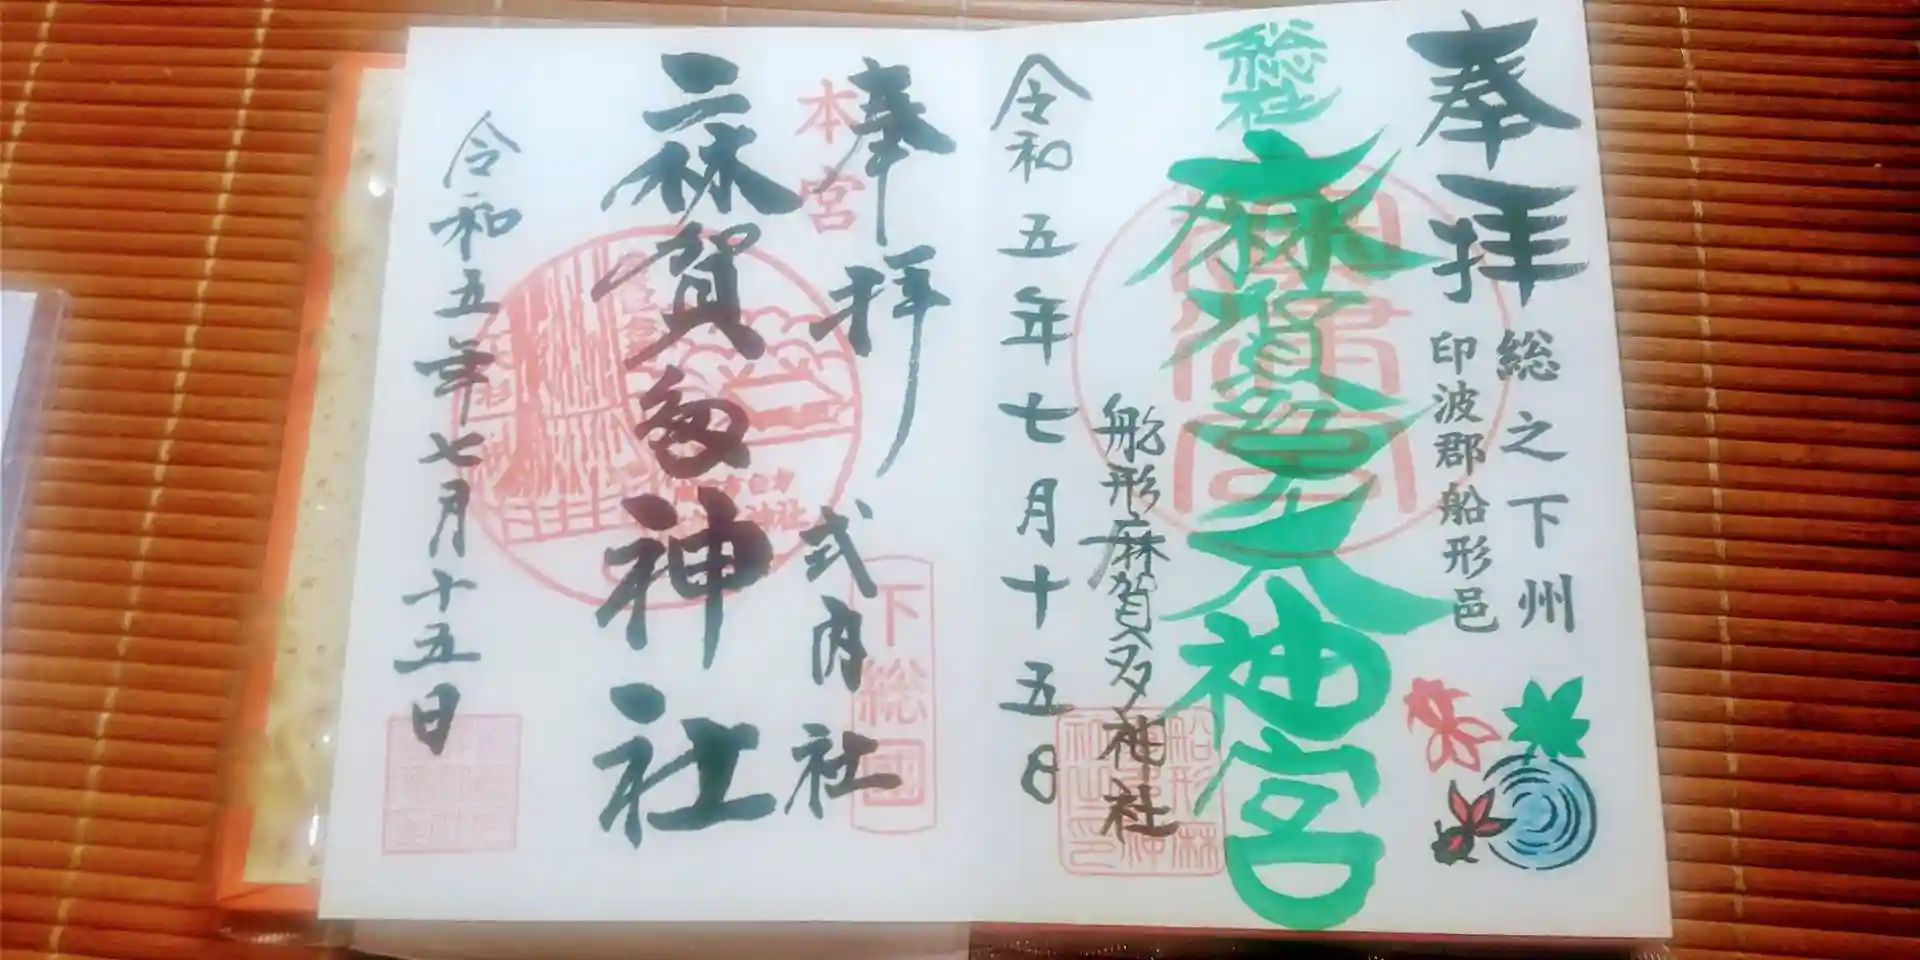 奉拝
総之下州
印波郡船形邑
総社
麻賀多大神宮
船形麻賀多神社
令和五年七月十五日
奉拝
本宮
式内社
下総國
麻賀多神社
令和五年七月十五日